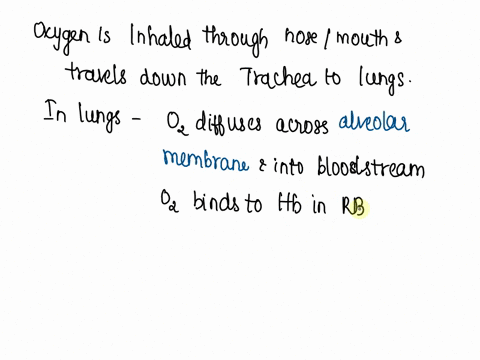 Oxygen is Inhaled through nose/mouth &
travels down the Trachea to lungs.
In lungs - O₂ diffuses across alveolar
membrane & into bloodstream
O₂ binds to Hb in RB